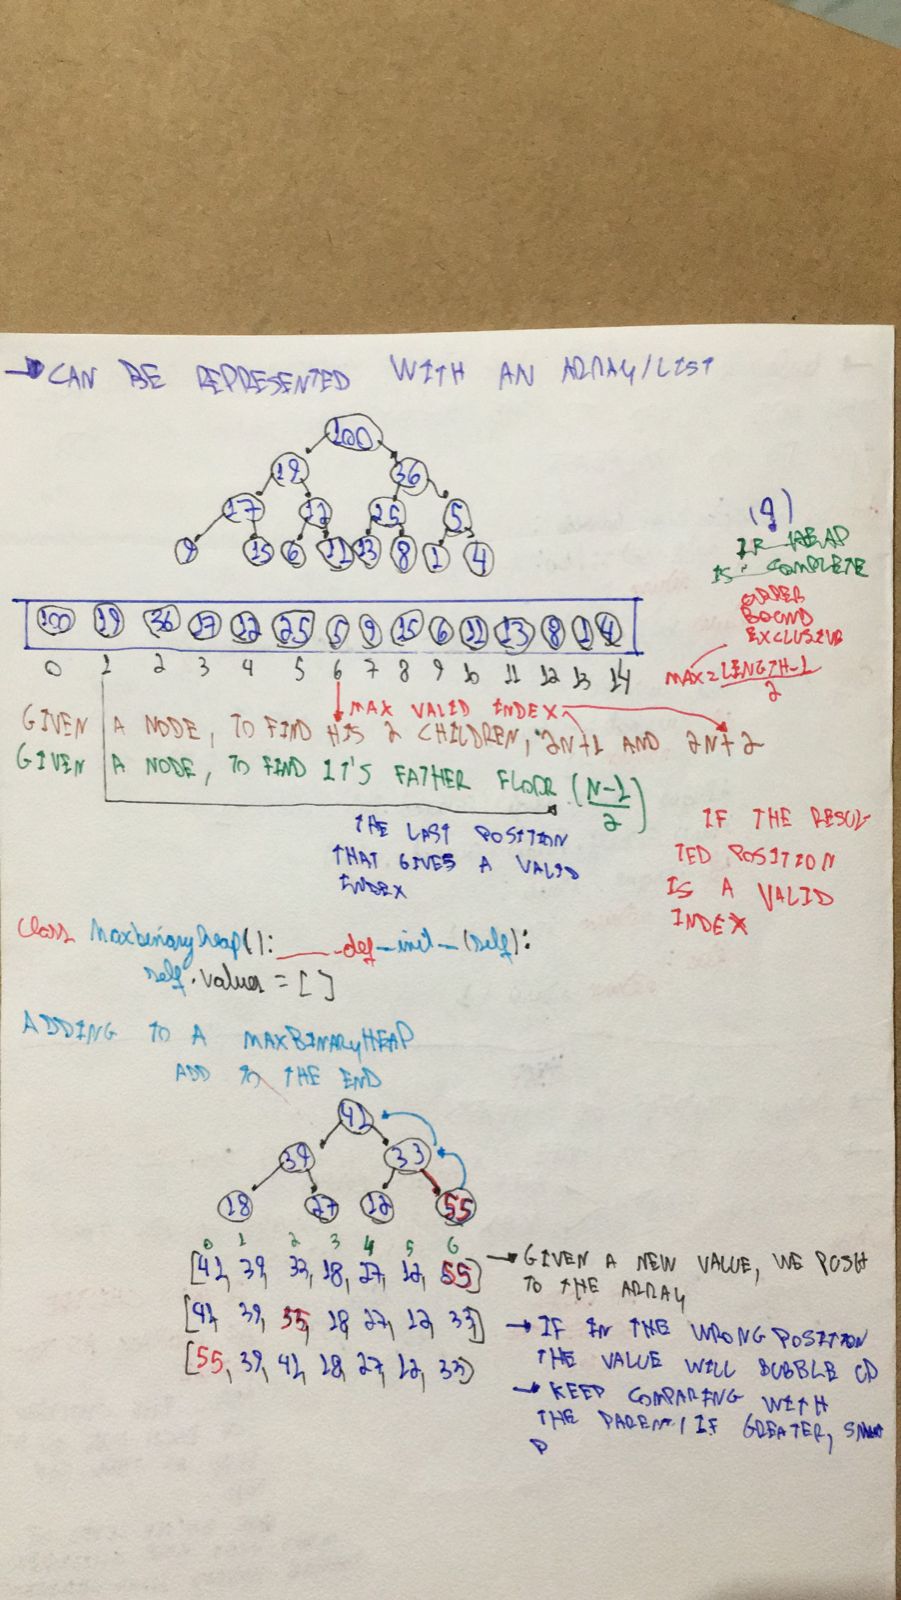 → CAN BE REPRESENTED WITH AN ARRAY/LIST
100
19 36
17 12 25 5
9 15 6 11 13 8 1 4
IF HEAP
IS COMPLETE
UPPER
BOUND
EXCLUSIVE
MAX = LENGTH-1
2
100 19 36 17 12 25 5 9 15 6 11 13 8 1 4
0 1 2 3 4 5 6 7 8 9 10 11 12 13 14
MAX VALID INDEX
GIVEN A NODE, TO FIND HIS 2 CHILDREN, 2N+1 AND 2N+2
GIVEN A NODE, TO FIND IT'S FATHER FLOOR (N-1
2)
THE LAST POSITION
THAT GIVES A VALID
INDEX
IF THE RESUL
TED POSITION
IS A VALID
INDEX
class Maxbinaryheap(): __def_init_(self):
self.values = []
ADDING TO A MAXBINARYHEAP
ADD TO THE END
41
39 33
18 27 12 55
0 1 2 3 4 5 6
[41, 39, 33, 18, 27, 12, 55]
[41, 39, 55, 18, 27, 12, 33]
[55, 39, 41, 18, 27, 12, 33]
→ GIVEN A NEW VALUE, WE PUSH
TO THE ARRAY
→ IF IN THE WRONG POSITION
THE VALUE WILL BUBBLE UP
→ KEEP COMPARING WITH
THE PARENT, IF GREATER,